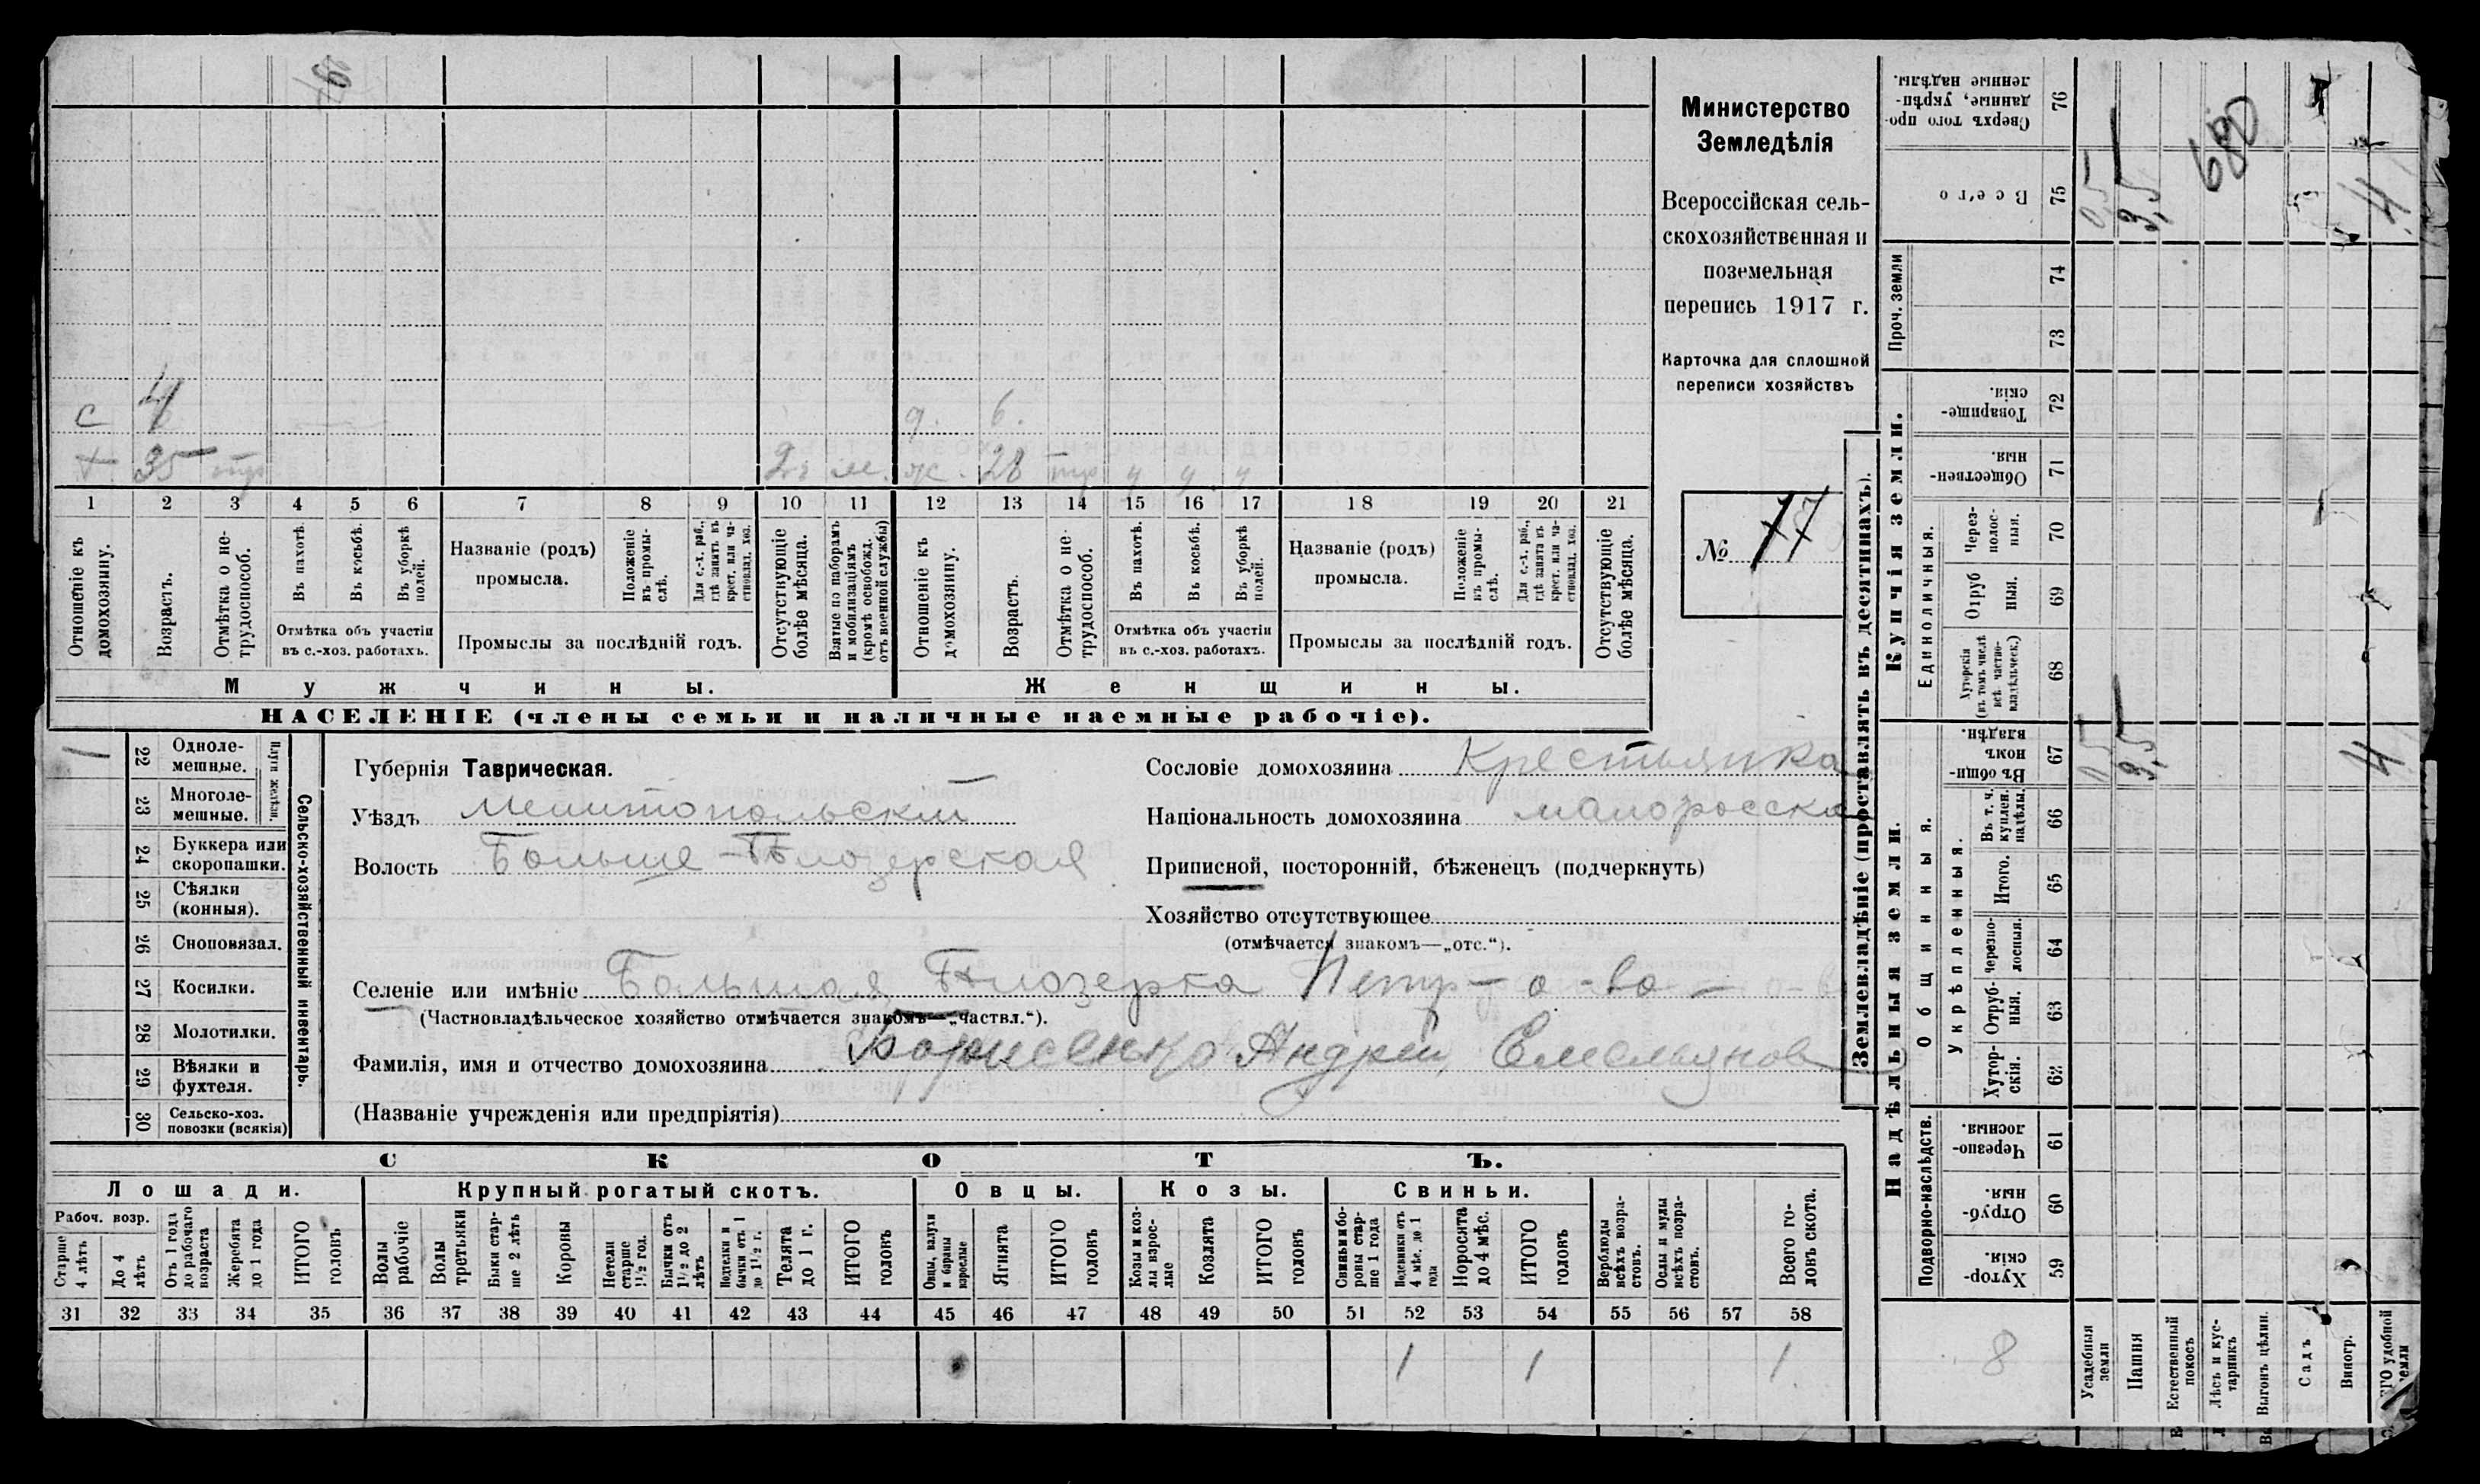 Министерство
Земледѣлія
Всероссійская сель-
скохозяйственная и
поземельная
перепись 1917 г.
Карточка для сплошной
переписи хозяйствъ
№ 77
с 4 д. 6.
х 35 тр 2 г. м. ж. 28 тр ч ч ч
1 2 3 4 5 6 7 8 9 10 11 12 13 14 15 16 17 18 19 20 21
Отношеніе къ домохозяину.
Возрастъ.
Отмѣтка о не-трудоспособ.
Въ пахотѣ.
Въ косьбѣ.
Въ уборкѣ полей.
Отмѣтка объ участіи
въ с.-хоз. работахъ.
Названіе (родъ)
промысла.
Положеніе въ промы-слѣ.
Для с.-х. раб., гдѣ занятъ въ крест. или ча-стновлад. хоз.
Промыслы за послѣдній годъ.
Отсутствующіе болѣе мѣсяца.
Взятые по наборамъ и мобилизаціямъ (кромѣ освобожд. отъ военной службы)
Отношеніе къ домохозяину.
Возрастъ.
Отмѣтка о не-трудоспособ.
Въ пахотѣ.
Въ косьбѣ.
Въ уборкѣ полей.
Отмѣтка объ участіи
въ с.-хоз. работахъ.
Названіе (родъ)
промысла.
Положеніе въ промы-слѣ.
Для с.-х. раб., гдѣ занята въ крест. или ча-стновлад. хоз.
Промыслы за послѣдній годъ.
Отсутствующіе болѣе мѣсяца.
Мужчины. Женщины.
НАСЕЛЕНІЕ (члены семьи и наличные наемные рабочіе).
Сельско-хозяйственный инвентарь.
Плуги желѣзн.
1 22 Одноле-мешные.
23 Многоле-мешные.
24 Буккера или скоропашки.
25 Сѣялки (конныя).
26 Сноповязал.
27 Косилки.
28 Молотилки.
29 Вѣялки и фухтеля.
30 Сельско-хоз. повозки (всякія)
Губернія Таврическая.
Уѣздъ Мелитопольскій
Волость Больше-Бѣлозерская
Сословіе домохозяина Крестьянка
Національность домохозяина малоросска
Приписной, посторонній, бѣженецъ (подчеркнуть)
Хозяйство отсутствующее
(отмѣчается знакомъ—„отс.“).
Селеніе или имѣніе Большая Бѣлозерка Петр-о-во
(Частновладѣльческое хозяйство отмѣчается знакомъ—„частвл.“).
Фамилія, имя и отчество домохозяина Борисенко Андрей Емельянов
(Названіе учрежденія или предпріятія)
СКОТЪ.
Лошади. Крупный рогатый скотъ. Овцы. Козы. Свиньи.
Рабоч. возр.
Старше 4 лѣтъ
До 4 лѣтъ
Отъ 1 года до рабочаго возраста
Жеребята до 1 года
ИТОГО головъ
Волы рабочіе
Волы третьяки
Быки стар-ше 2 лѣтъ
Коровы
Нетели старше 1½ год.
Бычки отъ 1½ до 2 лѣтъ
Подтелки и бычки отъ 1 до 1½ г.
Телята до 1 г.
ИТОГО головъ
Овцы, валухи и бараны взрослые
Ягнята
ИТОГО головъ
Козы и коз-лы взрос-лые
Козлята
ИТОГО головъ
Свиньи и бо-ровы стар-ше 1 года
Подсвинки отъ 4 мѣс. до 1 года
Поросята до 4 мѣс.
ИТОГО головъ
Верблюды всѣхъ возра-стовъ.
Ослы и мулы всѣхъ возра-стовъ.
Всего го-ловъ скота.
31 32 33 34 35 36 37 38 39 40 41 42 43 44 45 46 47 48 49 50 51 52 53 54 55 56 57 58
1 1 1
Землевладѣніе (проставлять въ десятинахъ).
Надѣльныя земли. Купчія земли.
Подворно-наслѣдств. Общинныя. Укрѣпленныя. Единоличныя. Проч. земли
59 Хутор-скія.
60 Отруб-ныя
61 Черезпо-лосныя.
62 Хутор-скія.
63 Отруб-ныя.
64 Черезпо-лосныя.
65 Итого.
66 Въ т. ч. куплен. надѣлы.
67 Въ общи-номъ владѣн.
68 Хуторскія (въ томъ числѣ всѣ частно-владѣльческ.)
69 Отруб ныя.
70 Через-полос-ныя.
71 Обществен-ныя.
72 Товарище-скія.
73
74
75 Всего
76 Сверхъ того про-данные, укрѣп-ленные надѣлы.
8
Усадебныя земли 0,5 0,5
Пашня 3,5 3,5
Естественный покосъ
Лѣсъ и кус-тарникъ
Выгонъ цѣлин.
Садъ
Виногр.
ГО удобной земли 4 4
680